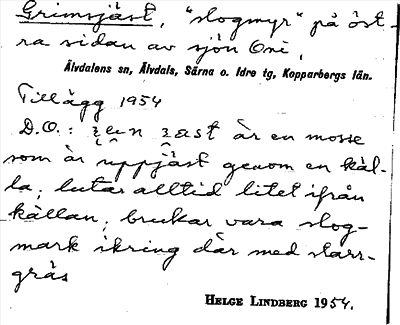 Grimsjäst, "slogmyr" på öst-
ra sidan av sjön Oni,
Älvdalens sn, Älvdals, Särna o. Idre tg, Kopparbergs län.
Tillägg 1954
D.O.: är en mosse
som är uppjäst genom en käl-
la; lutar alltid litet ifrån
källan; brukar vara slog-
mark ikring där med starr-
gräs
HELGE LINDBERG 1954.